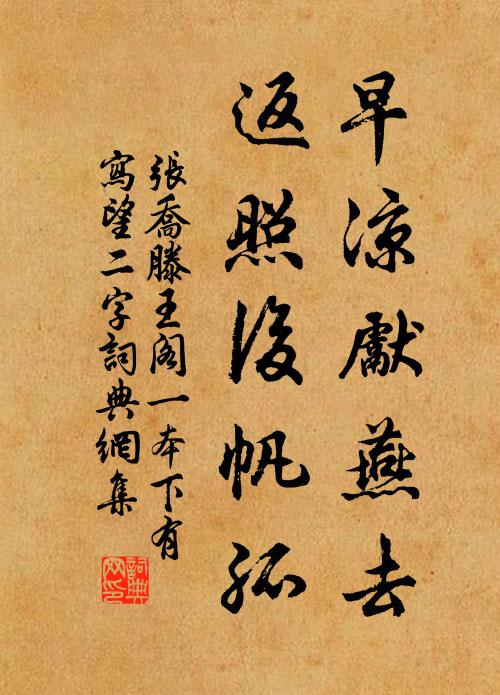 早涼獻燕去
返照後帆孤
張喬滕王閣一本下有
寫望二字詞典網集
詞典
网印